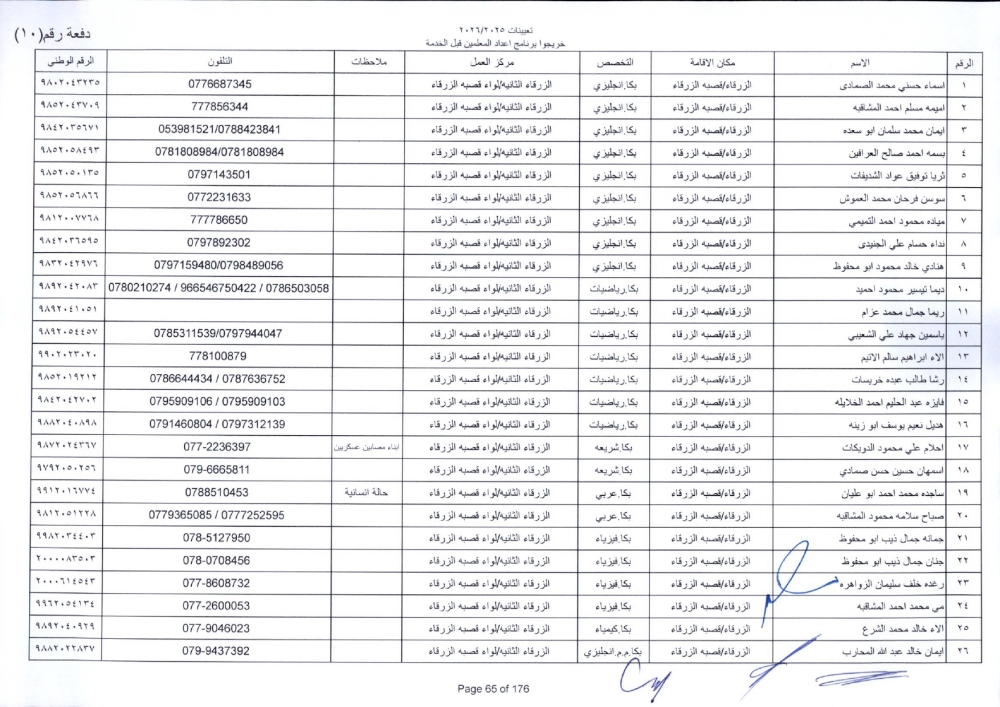 دفعة رقم(١٠)
تعيينات ٢٠٢٦/٢٠٢٥
خريجوا برنامج اعداد المعلمين قبل الخدمة
الرقم الاسم مكان الاقامة التخصص مركز العمل ملاحظات التلفون الرقم الوطني
١ اسماء حسني محمد الصمادى الزرقاء/قصبة الزرقاء بكا.انجليزي الزرقاء الثانيه/لواء قصبه الزرقاء 0776687345 ٩٨٠٢٠٤٣٢٣٥
٢ اميمه مسلم احمد المشاقبه الزرقاء/قصبة الزرقاء بكا.انجليزي الزرقاء الثانيه/لواء قصبه الزرقاء 777856344 ٩٨٥٢٠٤٣٧٠٩
٣ ايمان محمد سلمان ابو سعده الزرقاء/قصبة الزرقاء بكا.انجليزي الزرقاء الثانيه/لواء قصبه الزرقاء 053981521/0788423841 ٩٨٤٢٠٣٥٦٧١
٤ بسمه احمد صالح العرافين الزرقاء/قصبة الزرقاء بكا.انجليزي الزرقاء الثانيه/لواء قصبه الزرقاء 0781808984/0781808984 ٩٨٥٢٠٥٨٤٩٣
٥ ثريا توفيق عواد الشديفات الزرقاء/قصبة الزرقاء بكا.انجليزي الزرقاء الثانيه/لواء قصبه الزرقاء 0797143501 ٩٨٥٢٠٥٠١٣٥
٦ سوسن فرحان محمد العموش الزرقاء/قصبة الزرقاء بكا.انجليزي الزرقاء الثانيه/لواء قصبه الزرقاء 0772231633 ٩٨٥٢٠٥٦٨٦٦
٧ مياده محمود احمد التميمي الزرقاء/قصبة الزرقاء بكا.انجليزي الزرقاء الثانيه/لواء قصبه الزرقاء 777786650 ٩٨١٢٠٠٧٧٦٨
٨ نداء حسام علي الجنيدى الزرقاء/قصبة الزرقاء بكا.انجليزي الزرقاء الثانيه/لواء قصبه الزرقاء 0797892302 ٩٨٤٢٠٣٦٥٩٥
٩ هنادي خالد محمود ابو محفوظ الزرقاء/قصبة الزرقاء بكا.انجليزي الزرقاء الثانيه/لواء قصبه الزرقاء 0797159480/0798489056 ٩٨٣٢٠٤٢٩٧٦
١٠ ديما تيسير محمود احميد الزرقاء/قصبة الزرقاء بكا.رياضيات الزرقاء الثانيه/لواء قصبه الزرقاء 0780210274 / 966546750422 / 0786503058 ٩٨٩٢٠٤٢٠٨٣
١١ ريما جمال محمد عزام الزرقاء/قصبة الزرقاء بكا.رياضيات الزرقاء الثانيه/لواء قصبه الزرقاء ٩٨٩٢٠٤١٠٥١
١٢ ياسمين جهاد علي الشعيبي الزرقاء/قصبة الزرقاء بكا.رياضيات الزرقاء الثانيه/لواء قصبه الزرقاء 0785311539/0797944047 ٩٨٩٢٠٥٤٤٥٧
١٣ الاء ابراهيم سالم الاتيم الزرقاء/قصبة الزرقاء بكا.رياضيات الزرقاء الثانيه/لواء قصبه الزرقاء 778100879 ٩٩٠٢٠٢٣٠٢٠
١٤ رشا طالب عبده خريسات الزرقاء/قصبة الزرقاء بكا.رياضيات الزرقاء الثانيه/لواء قصبه الزرقاء 0786644434 / 0787636752 ٩٨٥٢٠١٩٢١٢
١٥ فايزه عبد الحليم احمد الخلايله الزرقاء/قصبة الزرقاء بكا.رياضيات الزرقاء الثانيه/لواء قصبه الزرقاء 0795909106 / 0795909103 ٩٨٤٢٠٤٢٧٠٢
١٦ هديل نعيم يوسف ابو زينه الزرقاء/قصبة الزرقاء بكا.رياضيات الزرقاء الثانيه/لواء قصبه الزرقاء 0791460804 / 0797312139 ٩٨٨٢٠٤٠٨٩٨
١٧ احلام علي محمود الدويكات الزرقاء/قصبة الزرقاء بكا.شريعه الزرقاء الثانيه/لواء قصبه الزرقاء ابناء مصابين عسكريين 077-2236397 ٩٨٧٢٠٢٤٣٦٧
١٨ اسمهان حسين حسن صمادي الزرقاء/قصبة الزرقاء بكا.شريعه الزرقاء الثانيه/لواء قصبه الزرقاء 079-6665811 ٩٧٩٢٠٥٠٢٥٦
١٩ ساجده محمد احمد ابو عليان الزرقاء/قصبة الزرقاء بكا.عربي الزرقاء الثانيه/لواء قصبه الزرقاء حالة انسانية 0788510453 ٩٩١٢٠١٦٧٧٤
٢٠ صباح سلامه محمود المشاقبه الزرقاء/قصبة الزرقاء بكا.عربي الزرقاء الثانيه/لواء قصبه الزرقاء 0779365085 / 0777252595 ٩٨١٢٠٥١٢٢٨
٢١ جمانه جمال ذيب ابو محفوظ الزرقاء/قصبة الزرقاء بكا.فيزياء الزرقاء الثانيه/لواء قصبه الزرقاء 078-5127950 ٩٩٨٢٠٣٤٤٠٣
٢٢ جنان جمال ذيب ابو محفوظ الزرقاء/قصبة الزرقاء بكا.فيزياء الزرقاء الثانيه/لواء قصبه الزرقاء 078-0708456 ٢٠٠٠٠٨٣٥٠٣
٢٣ رغده خلف سليمان الزواهره الزرقاء/قصبة الزرقاء بكا.فيزياء الزرقاء الثانيه/لواء قصبه الزرقاء 077-8608732 ٢٠٠٠٦١٤٥٤٣
٢٤ مي محمد احمد المشاقبه الزرقاء/قصبة الزرقاء بكا.فيزياء الزرقاء الثانيه/لواء قصبه الزرقاء 077-2600053 ٩٩٦٢٠٥٤١٣٤
٢٥ الاء خالد محمد الشرع الزرقاء/قصبة الزرقاء بكا.كيمياء الزرقاء الثانيه/لواء قصبه الزرقاء 077-9046023 ٩٨٩٢٠٤٠٩٢٩
٢٦ ايمان خالد عبد الله المحارب الزرقاء/قصبة الزرقاء بكا.م.م.انجليزي الزرقاء الثانيه/لواء قصبه الزرقاء 079-9437392 ٩٨٨٢٠٢٢٨٣٧
Page 65 of 176